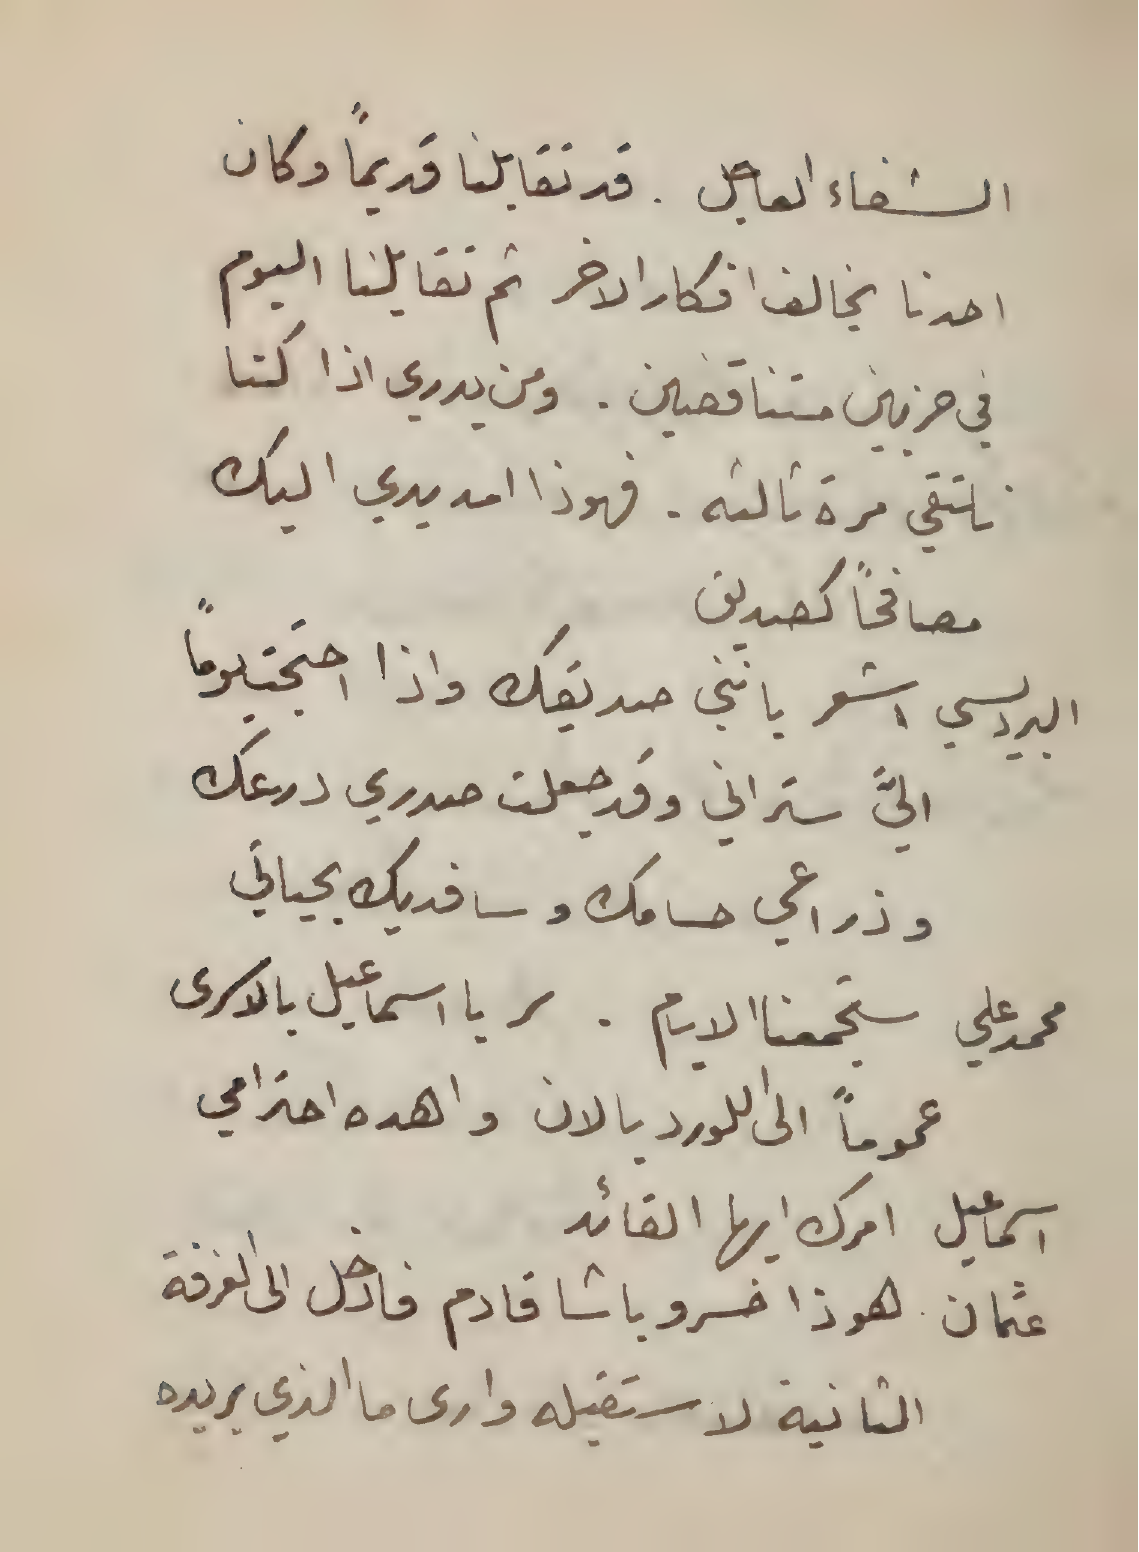 الشفاء العاجل . قد تقابلنا قديماً وكان
احدنا يخالف افكار الاخر ثم تقابلنا اليوم
في حزبين متناقضين . ومن يدري اذا كنا
نلتقي مرة ثالثه . فهوذا امد يدي اليك
مصافحاً كصديق
البرديسي اشعر بانني صديقك واذا احتجت يوماً
اليَّ ستراني وقد جعلت صدري درعك
وذراعي حسامك وسافديك بحياتي
محمد علي ستجمعنا الايام . سر يا اسماعيل بالاسرى
عموماً الى اللورد بالان واهده احترامي
اسماعيل امرك ايها القائد
عثمان . هوذا خسرو باشا قادم فادخل الى الغرفة
الثانية لاستقبله وارى ما الذي يريده